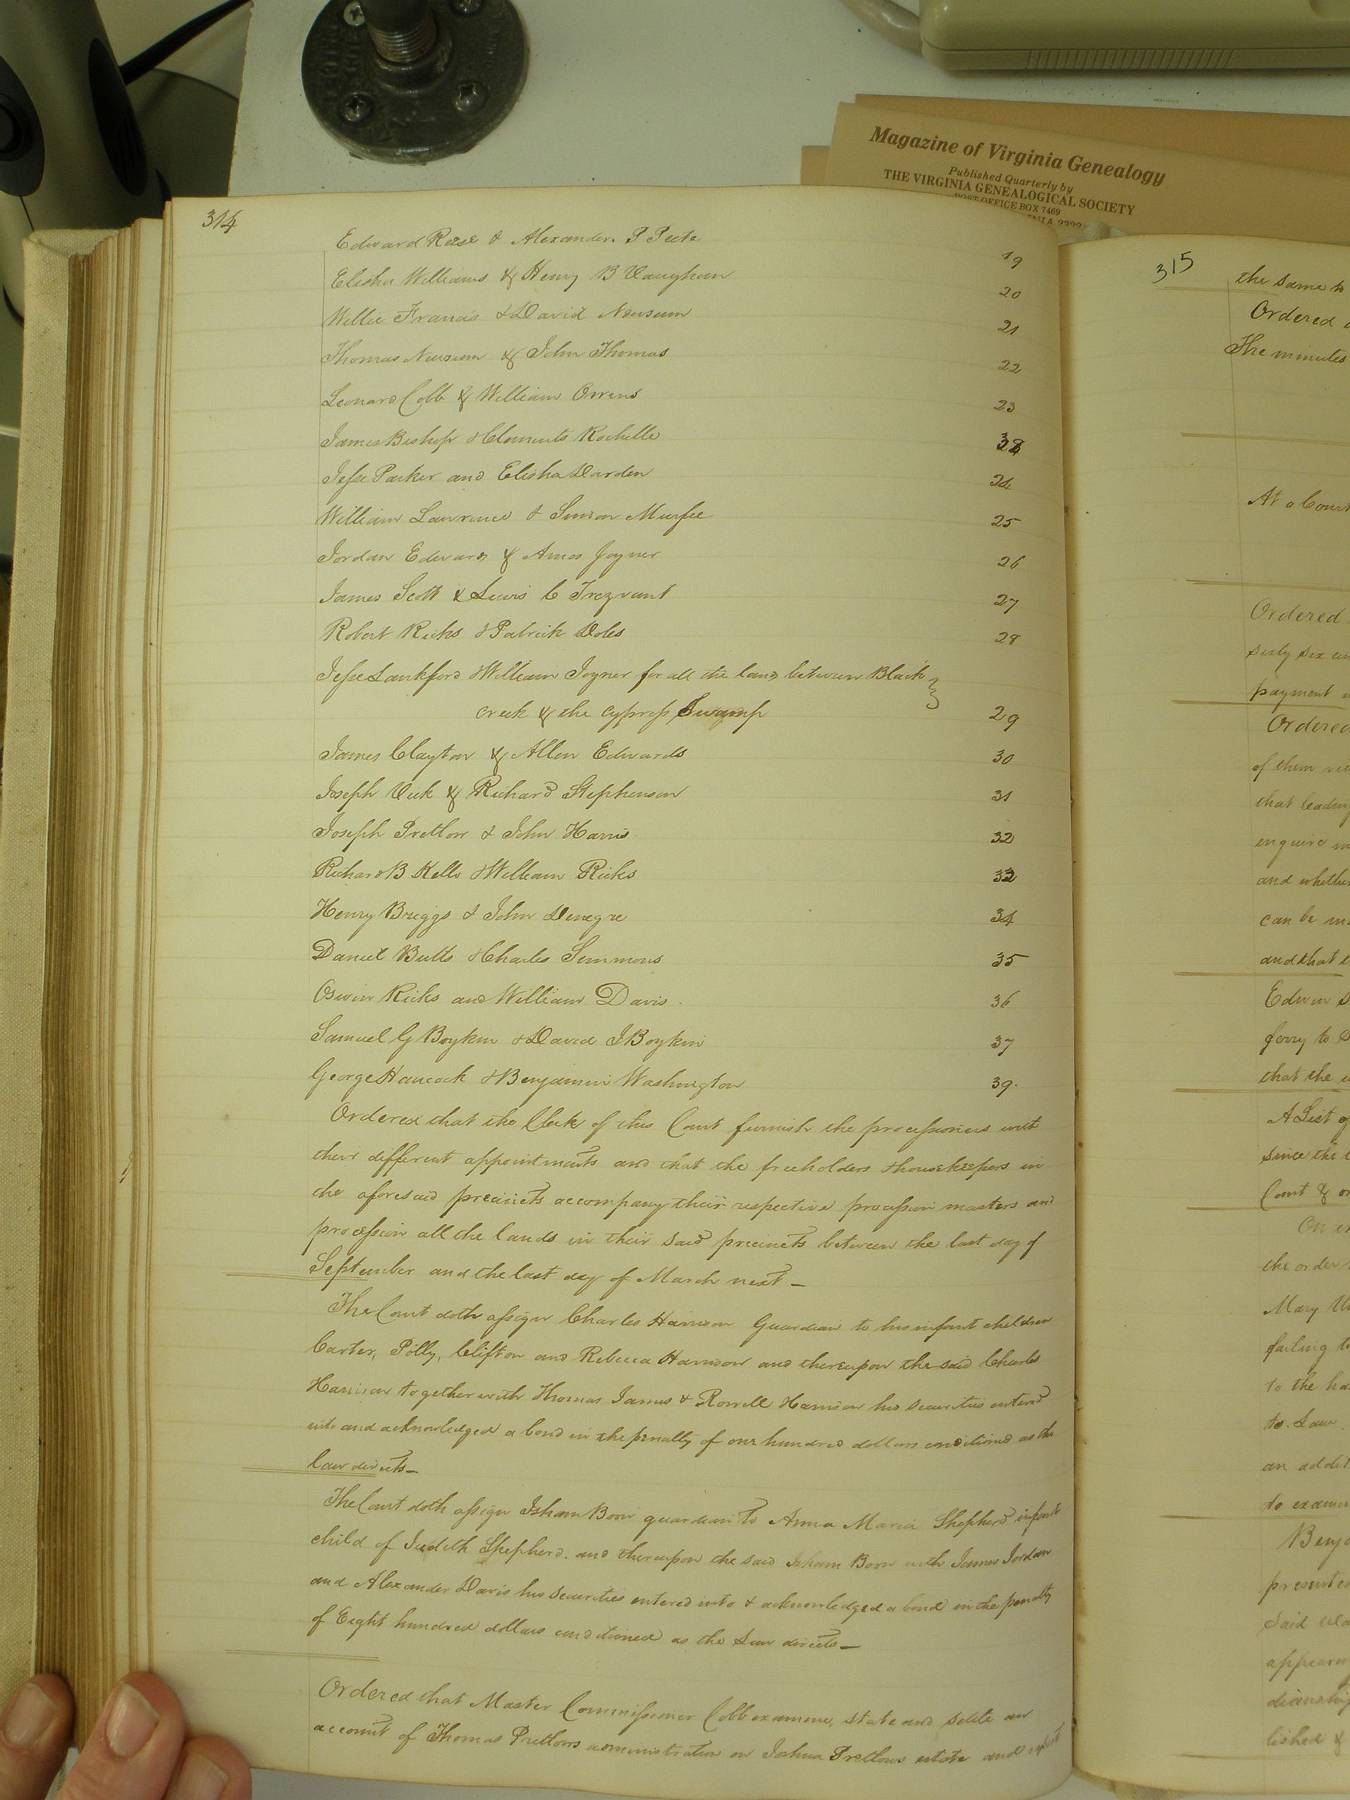 Magazine of Virginia Genealogy
Published Quarterly by
THE VIRGINIA GENEALOGICAL SOCIETY
POST OFFICE BOX 7469
314
Edward Rose & Alexander P Peete 19
Elisha Williams & Henry B Vaughan 20
Willie Francis & David Newsum 21
Thomas Newsum & John Thomas 22
Leonard Cobb & William Owens 23
James Bishop & Clements Rochelle 38
Jesse Parker and Elisha Darden 24
William Lawrence & Simon Murfee 25
Jordan Edwards & Amos Joyner 26
James Scott & Lewis C Trezvant 27
Robert Ricks & Patrick Doles 28
Jesse Lankford & William Joyner for all the land between Black
creek & the Cypress Swamp 29
James Clayton & Allen Edwards 30
Joseph Vick & Richard Stephenson 31
Joseph Pretlow & John Harris 32
Richard B Kello & William Ricks 33
Henry Briggs & John Denegre 34
Daniel Butts & Charles Simmons 35
Oswin Ricks and William Davis 36
Samuel G Boykin & David J Boykin 37
George Hancock & Benjamin Washington 39.
Ordered that the Clerk of this Court furnish the processioners with
their different appointments and that the freeholders & housekeepers in
the aforesaid precincts accompany their respective procession masters and
procession all the lands in their said precincts between the last day of
September and the last day of March next —
The Court doth assign Charles Harrison Guardian to his infant children
Carter, Polly, Clifton and Rebecca Harrison and thereupon the said Charles
Harrison together with Thomas James & Rowell Harrison his securities entered
into and acknowledged a bond in the penalty of one hundred dollars conditioned as the
law directs —
The Court doth assign Isham Born guardian to Anna Maria Shepherd infant
child of Judith Shepherd. and thereupon the said Isham Born with James Jordan
and Alexander Davis his securities entered into & acknowledged a bond in the penalty
of Eight hundred dollars conditioned as the Law directs —
Ordered that Master Commissioner Cobb examine, state and settle an
account of Thomas Pretlows administration on Joshua Pretlows estate and report
315
the same to
Ordered
The minutes
At a Court
Ordered
sixty six
payment
Ordered
of them
that leading
enquire
and whether
can be
and that
Edwin
ferry to
that the
A List of
since the
Court &
On
the order
Mary
failing to
to the
to Law
an addit
to examine
Benj
presented
said
appeared
lished &